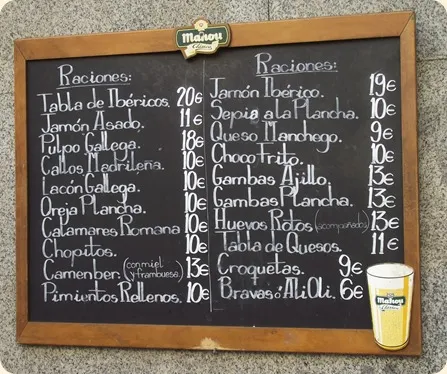 Mahou
Clásica
Raciones:
Tabla de Ibéricos. 20€
Jamón Asado. 11€
Pulpo Gallega. 18€
Callos Madrileña. 10€
Lacón Gallega. 10€
Oreja Plancha. 10€
Calamares Romana 10€
Chopitos. 10€
Camenber. (con miel y frambuesa) 13€
Pimientos Rellenos. 10€
Raciones:
Jamón Ibérico. 19€
Sepia a la Plancha. 10€
Queso Manchego. 9€
Choco Frito. 10€
Gambas Ajillo. 13€
Gambas Plancha. 13€
Huevos Rotos (acompañados) 13€
Tabla de Quesos. 11€
Croquetas. 9€
Bravas ó Ali Oli. 6€
Mahou